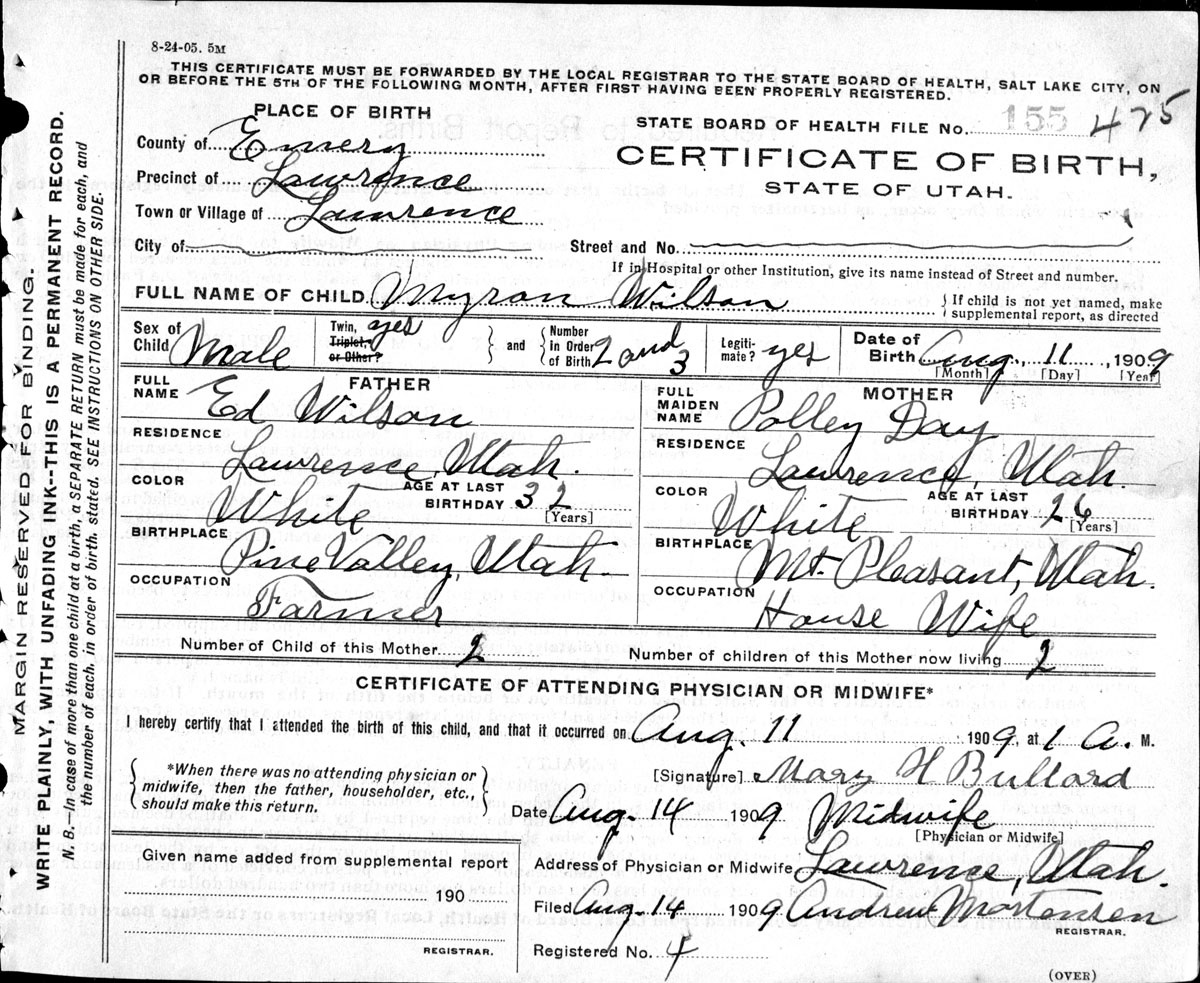 8-24-05. 5M
THIS CERTIFICATE MUST BE FORWARDED BY THE LOCAL REGISTRAR TO THE STATE BOARD OF HEALTH, SALT LAKE CITY, ON
OR BEFORE THE 5TH OF THE FOLLOWING MONTH, AFTER FIRST HAVING BEEN PROPERLY REGISTERED.
PLACE OF BIRTH
STATE BOARD OF HEALTH FILE No. 155 475
County of Emery
CERTIFICATE OF BIRTH,
Precinct of Lawrence
STATE OF UTAH.
Town or Village of Lawrence
City of
Street and No.
If in Hospital or other Institution, give its name instead of Street and number.
FULL NAME OF CHILD Myron Wilson
If child is not yet named, make
supplemental report, as directed
Sex of Child Male
Twin, yes
Triplet,
or Other?
and
Number in Order of Birth 2 and 3
Legiti-mate? yes
Date of Birth Aug. 11, 1909
[Month] [Day] [Year]
FATHER
FULL NAME Ed Wilson
RESIDENCE
Lawrence, Utah.
COLOR White
AGE AT LAST BIRTHDAY 32
[Years]
BIRTHPLACE
Pine Valley, Utah.
OCCUPATION
Farmer
MOTHER
FULL MAIDEN NAME Polley Day
RESIDENCE
Lawrence, Utah.
COLOR White
AGE AT LAST BIRTHDAY 26
[Years]
BIRTHPLACE
Mt. Pleasant, Utah.
OCCUPATION
House Wife
Number of Child of this Mother 2
Number of children of this Mother now living 2
CERTIFICATE OF ATTENDING PHYSICIAN OR MIDWIFE*
I hereby certify that I attended the birth of this child, and that it occurred on Aug. 11 1909, at 1 A. M.
*When there was no attending physician or
midwife, then the father, householder, etc.,
should make this return.
[Signature] Mary H Bullard
Date Aug. 14 1909 Midwife
[Physician or Midwife]
Given name added from supplemental report
190
REGISTRAR.
Address of Physician or Midwife Lawrence, Utah.
Filed Aug. 14 1909 Andrew Mortensen
REGISTRAR.
Registered No. 4
(OVER)
MARGIN RESERVED FOR BINDING.
WRITE PLAINLY, WITH UNFADING INK--THIS IS A PERMANENT RECORD.
N. B.—In case of more than one child at a birth, a SEPARATE RETURN must be made for each, and
the number of each, in order of birth, stated. SEE INSTRUCTIONS ON OTHER SIDE.